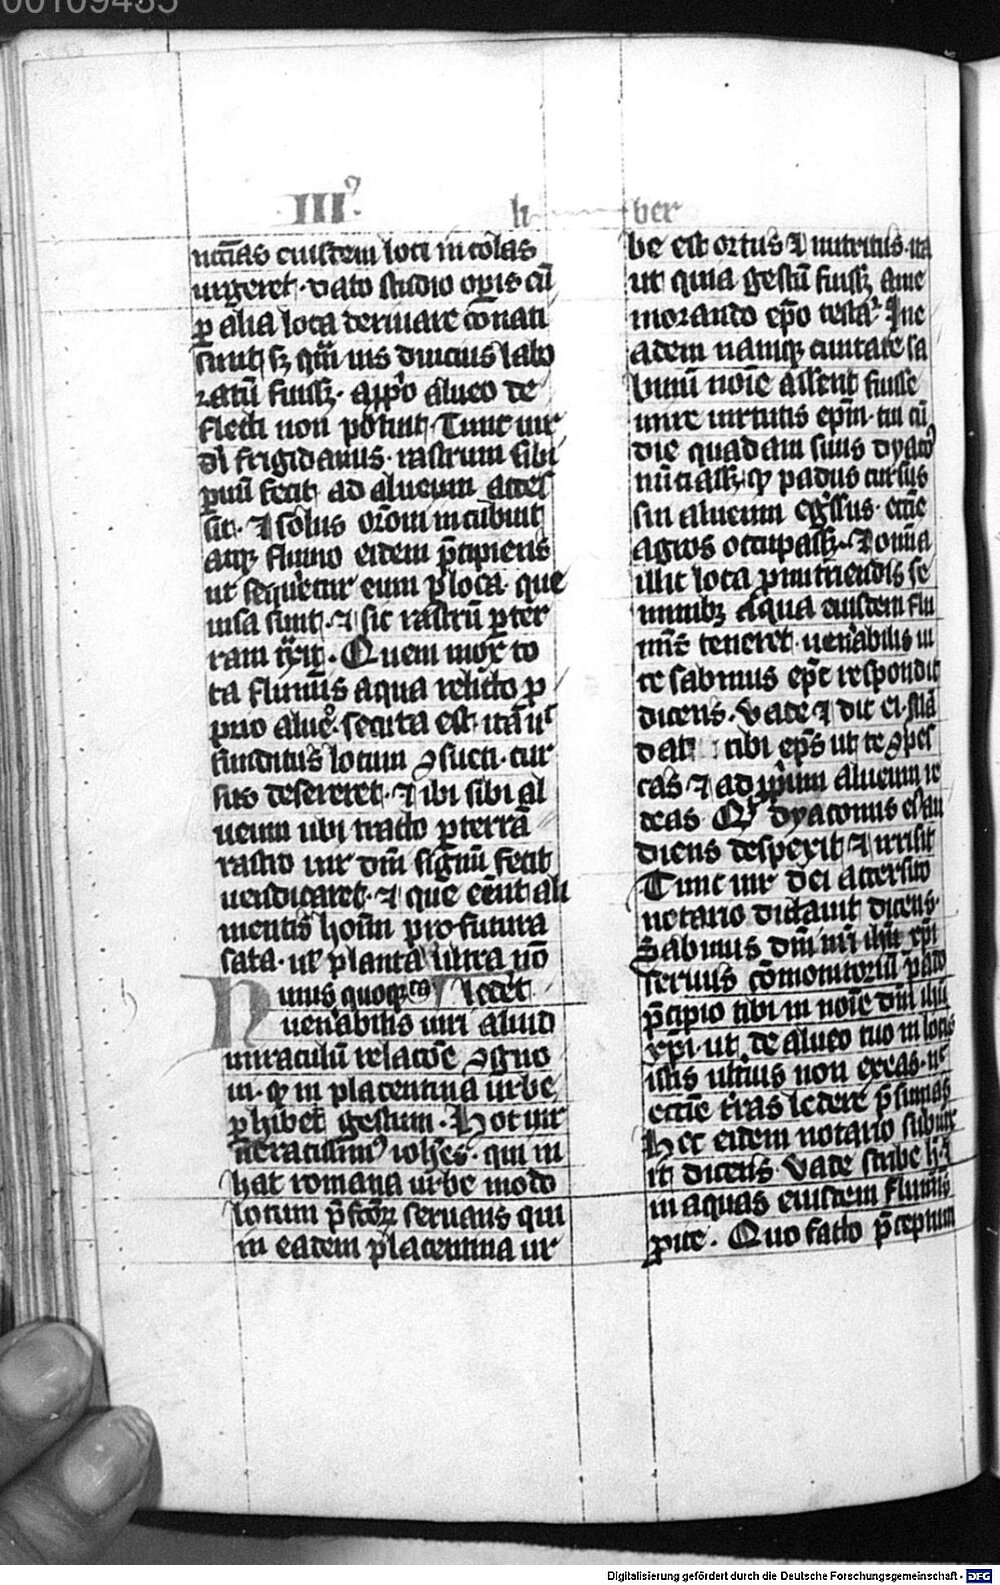 00109435
III⁹
li ber
nitates eiusdem loci incolas
urgeret · dato studio opis cū
ꝑ alia loca deriuare conati
sunt sꝫ qm̄ uis diucius labo
ratū fuissꝫ · a ꝓp̄o alueo de
flecti non potuit · Tunc uir
dī frigidianus · rastrum sibi
ꝑuū fecit ad alueum acces
sit · ⁊ solus orōni incubuit
atqꝫ fluuio eidem p̄cipiens
ut sequetur eum ꝑ loca que
iussa sunt · ⁊ sic rastrū ꝑ ter
ram t̄xit · Quem mox to
ta fluminis aqua relicto ꝓ
prio alueo · secuta est · ita ut
funditus locum ꝯsueti · cur
sus desereret · ⁊ ibi sibi al
ueum ubi tracto ꝑ terrā
rastro uir dn̄i signū fecit
uendicaret · ⁊ que erūt ali
mentis hoīm profutura
sata · uel plantata ultra nō
lederet
Huius quoqꝫ
uenerabilis uiri aliud
miraculū relatōne ꝯgno
ui · qd̄ in placentina urbe
ꝑhibet gestum · Hoc uir
ueracissim⁹ ioh̄es · qui in
hac romana urbe modo
locum p̄fectoꝝ seruans qui
in eadem placentina ur
be est ortus ⁊ nutritus · ita
ut quia gestū fuissꝫ a me
morando ep̄o testat̄ · In e
adem namqꝫ ciuitate sa
binū noīe asserit fuisse
mire uirtutis ep̄m · cui cū
die quadam suus dyacon⁹
nūciassꝫ qꝫ padus cursus
sui alueum eg̃ssus · ecc̄e
agros occupassꝫ · ⁊ om̄ia
illic loca ꝓ nutriendis se
minibꝫ aqua eiusdem flu
minis teneret · uenerabilis ui
te sabinus ep̄c respondit
dicens · Vade ⁊ dic ei · Mā
dat tibi ep̄s ut te ꝯpes
cas ⁊ ad ꝓprium alueum re
deas Qd̄ dyaconus eī au
diens despexit ⁊ irrisit
Tunc uir dei accersito
notario dictauit dicens ·
Sabinus dn̄i nr̄i ih̄u xp̄i
seruus cōmonitoriū pado
p̄cipio tibi in noīe dn̄i ih̄u
xp̄i · ut de alueo tuo in locis
istis ulterius non exeas · nec
ecc̄e t̄ras ledere p̄sumas
Hec eidem notario subiunx
it dicens Vade scribe h̄ · ⁊
in aquas eiusdem fluminis
ꝓice · Quo facto p̄ceptum
Digitalisierung gefördert durch die Deutsche Forschungsgemeinschaft - DFG